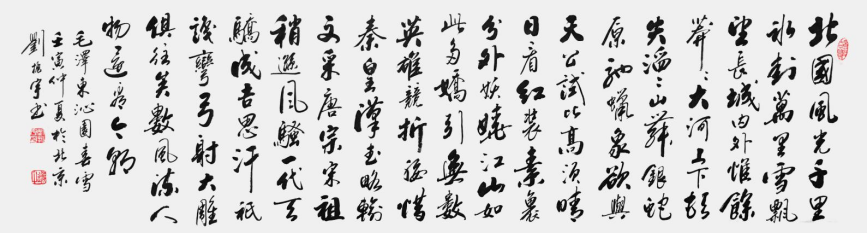 北國風光千里
冰封萬里雪飄
望長城內外惟餘
莽莽大河上下頓
失滔滔山舞銀蛇
原馳蠟象欲與
天公試比高須晴
日看紅裝素裹
分外妖嬈江山如
此多嬌引無數
英雄競折腰惜
秦皇漢武略輸
文采唐宗宋祖
稍遜風騷一代天
驕成吉思汗祇
識彎弓射大雕
俱往矣數風流人
物還看今朝
毛澤東沁園春雪
壬寅仲夏於北京
劉振宇書